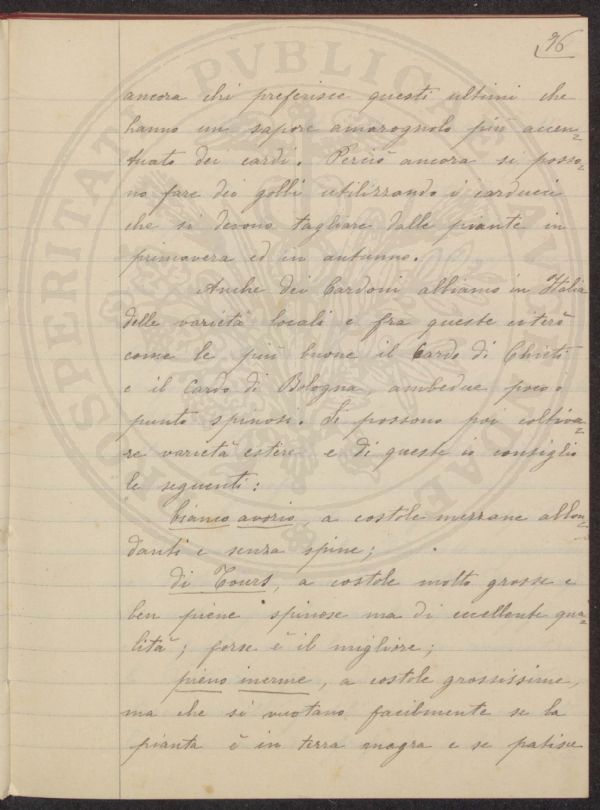 96
ancora chi preferisce questi ultimi che
hanno un sapore amarognolo più accen-
tuato dei cardi. Perciò ancora si posso-
no fare dei gobbi utilizzando i carducci
che si devono tagliare dalle piante in
primavera ed in autunno.
Anche dei Cardoni abbiamo in Italia
delle varietà locali e fra queste citerò
come le più buone il Cardo di Chieti
e il Cardo di Bologna, ambedue poco o
punto spinosi. Si possono poi coltiva-
re varietà estere e di queste io consiglio
le seguenti:
bianco avorio, a costole mezzane abbon-
danti e senza spine;
di Tours, a costole molto grosse e
ben piene spinose ma di eccellente qua-
lità; forse è il migliore;
pieno inerme, a costole grossissime,
ma che si vuotano facilmente se la
pianta è in terra magra e se patisce
PVBLICAE
PROSPERITATI